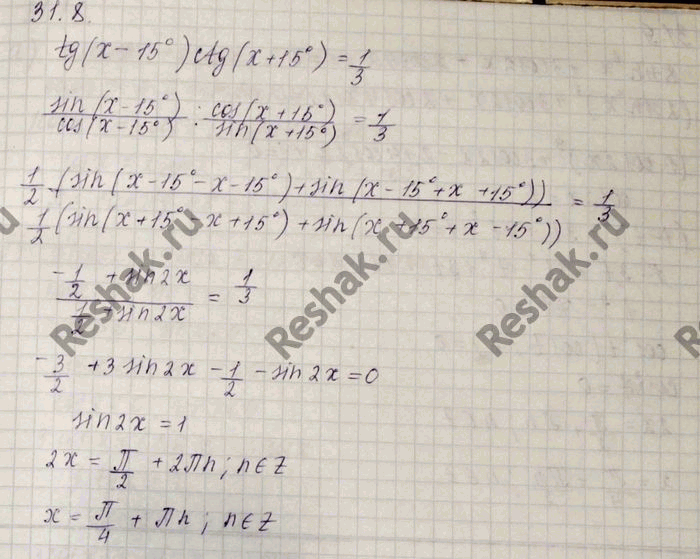 31.8.
tg(x-15°)ctg(x+15°)=1/3
sin(x-15°)/cos(x-15°) : cos(x+15°)/sin(x+15°) = 1/3
1/2·(sin(x-15°-x-15°)+sin(x-15°+x+15°)) / 1/2(sin(x+15°-x+15°)+sin(x+15°+x-15°)) = 1/3
(-1/2 + sin2x) / (1/2 + sin2x) = 1/3
-3/2 + 3sin2x - 1/2 - sin2x = 0
sin2x = 1
2x = П/2 + 2Пn; n∈Z
x = П/4 + Пn; n∈Z
Reshak.ru
Reshak.ru
Reshak.ru